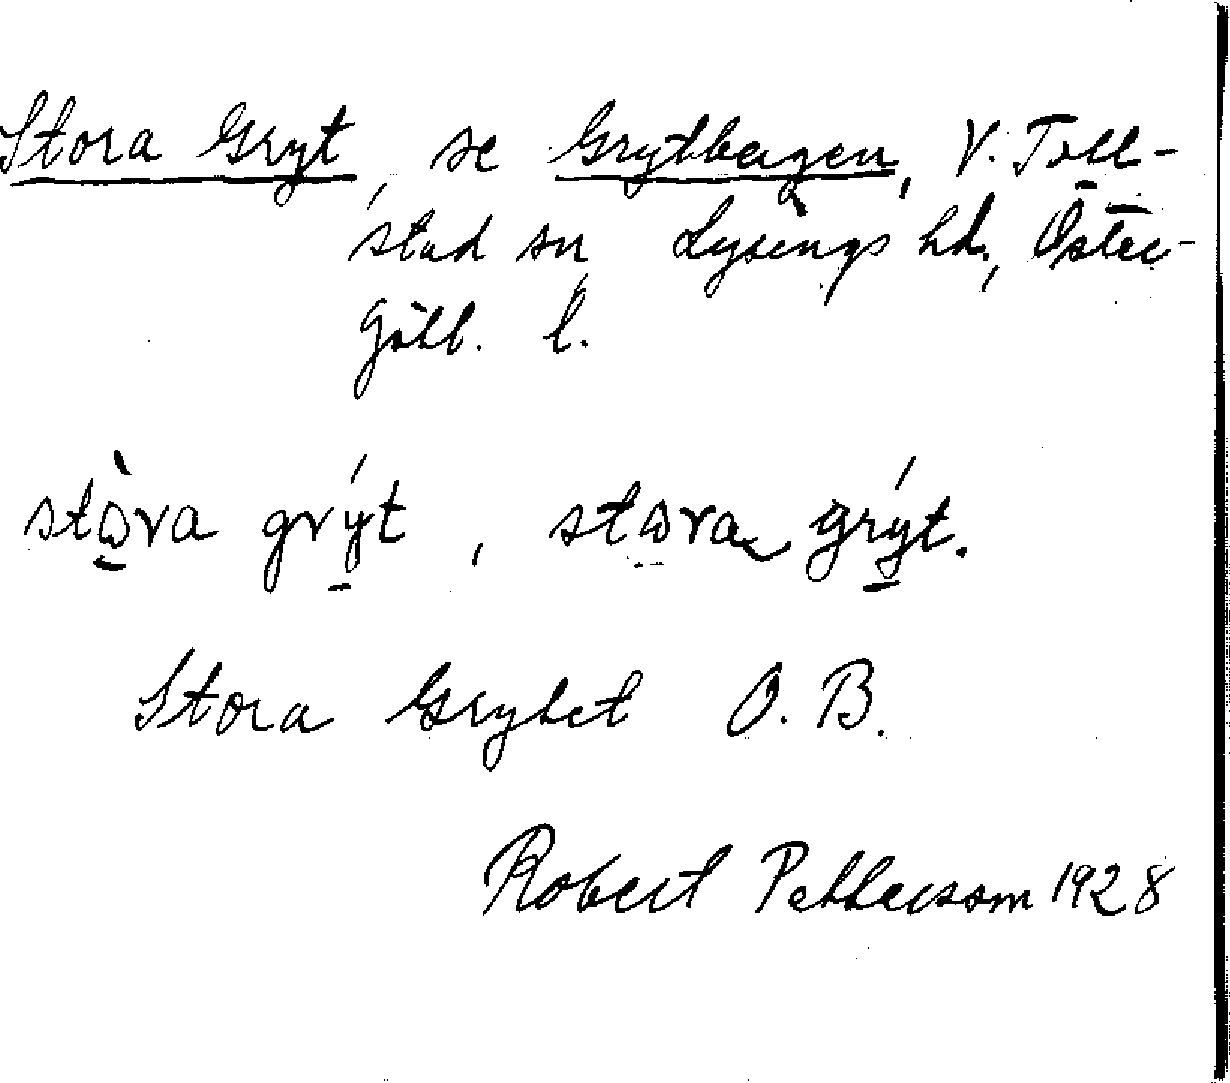 Stora Gryt, se Grytbergen, V. Toll-
stad sn, Lysings hd., Öster-
götl. l.
stɷ̀ra grýt, stɷra grýt.
Stora Grytet O. B.
Robert Pettersson 1928